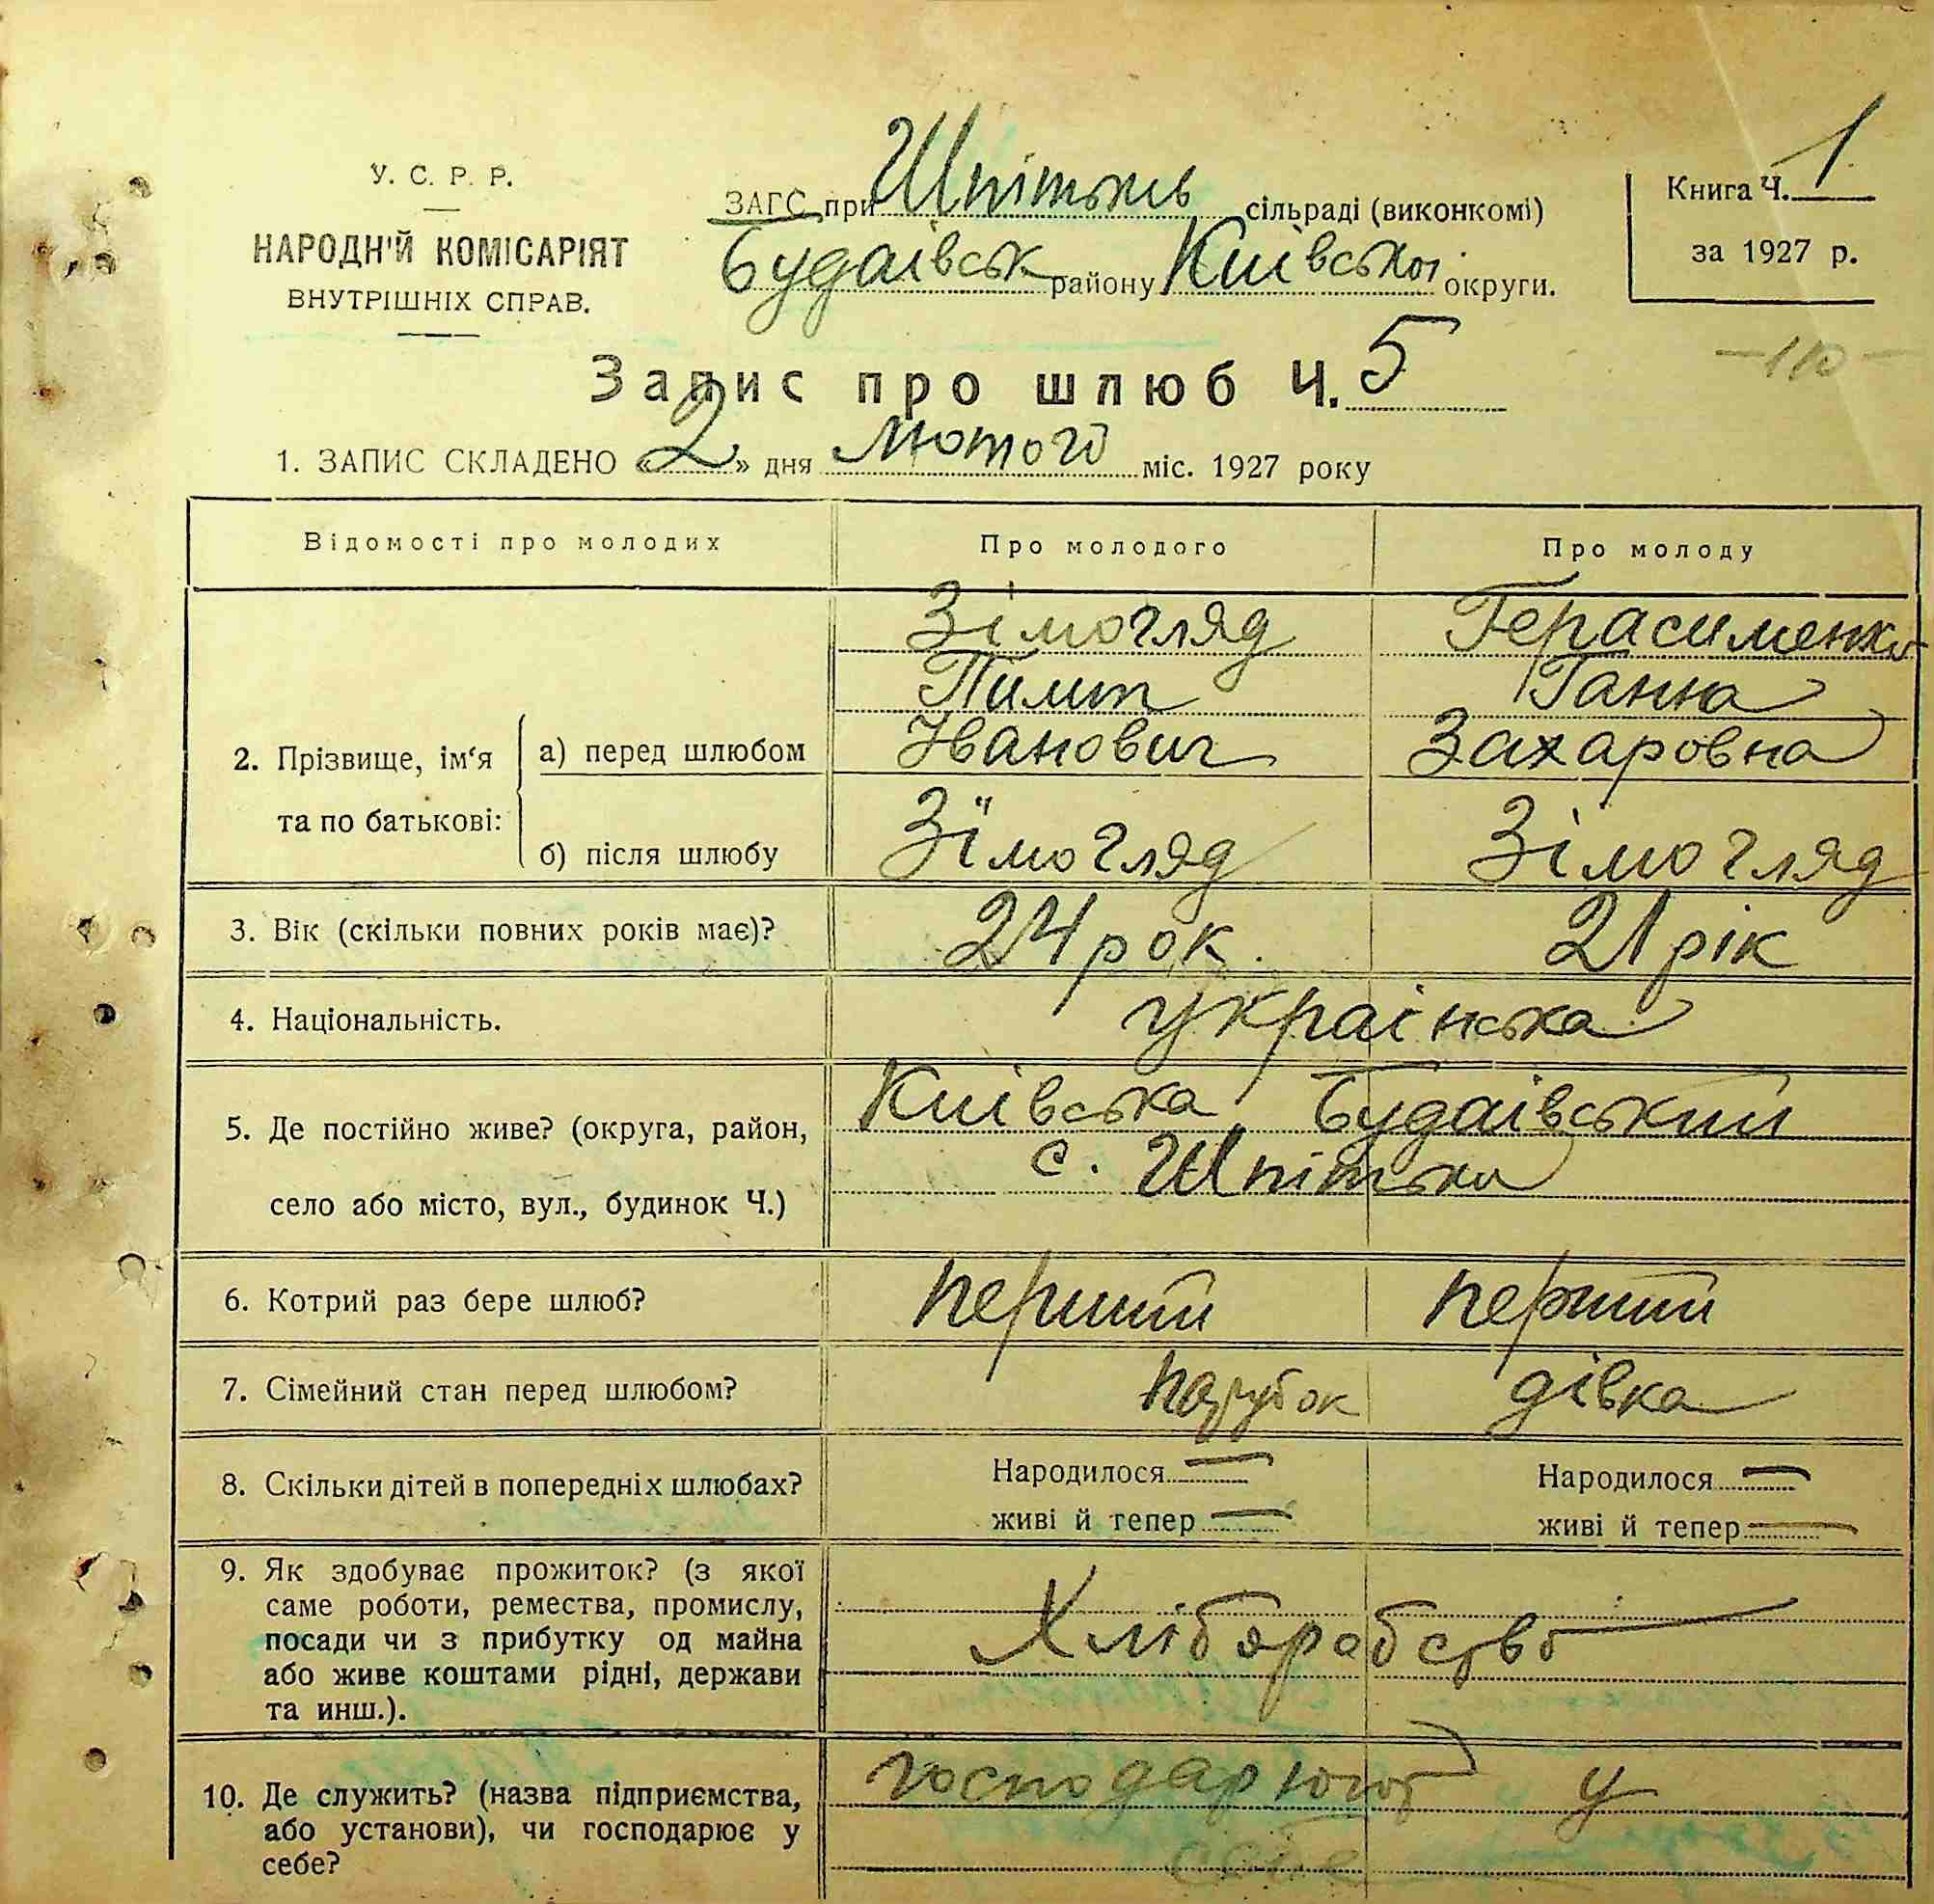 У. С. Р. Р.
НАРОДНІЙ КОМІСАРІЯТ
ВНУТРІШНІХ СПРАВ.
ЗАГС при Шпітьків сільраді (виконкомі)
Будаівськ району Київської округи.
Книга Ч. 1
за 1927 р.
110
Запис про шлюб Ч. 5
1. ЗАПИС СКЛАДЕНО «2» дня Лютого міс. 1927 року
Відомості про молодих
Про молодого
Про молоду
2. Прізвище, ім‘я та по батькові:
а) перед шлюбом
Зімогляд
Пилип
Іванович
Герасименко
Ганна
Захаровна
б) після шлюбу
Зімогляд
Зімогляд
3. Вік (скільки повних років має)?
24 рок.
21 рік
4. Національність.
українська
5. Де постійно живе? (округа, район,
село або місто, вул., будинок Ч.)
Київська Будаівський
с. Шпітьки
6. Котрий раз бере шлюб?
перший
перший
7. Сімейний стан перед шлюбом?
парубок
дівка
8. Скільки дітей в попередніх шлюбах?
Народилося —
живі й тепер —
Народилося —
живі й тепер —
9. Як здобуває прожиток? (з якої
саме роботи, ремества, промислу,
посади чи з прибутку од майна
або живе коштами рідні, держави
та инш.).
Хліборобство
10. Де служить? (назва підприємства,
або установи), чи господарює у
себе?
господарюют у
себе